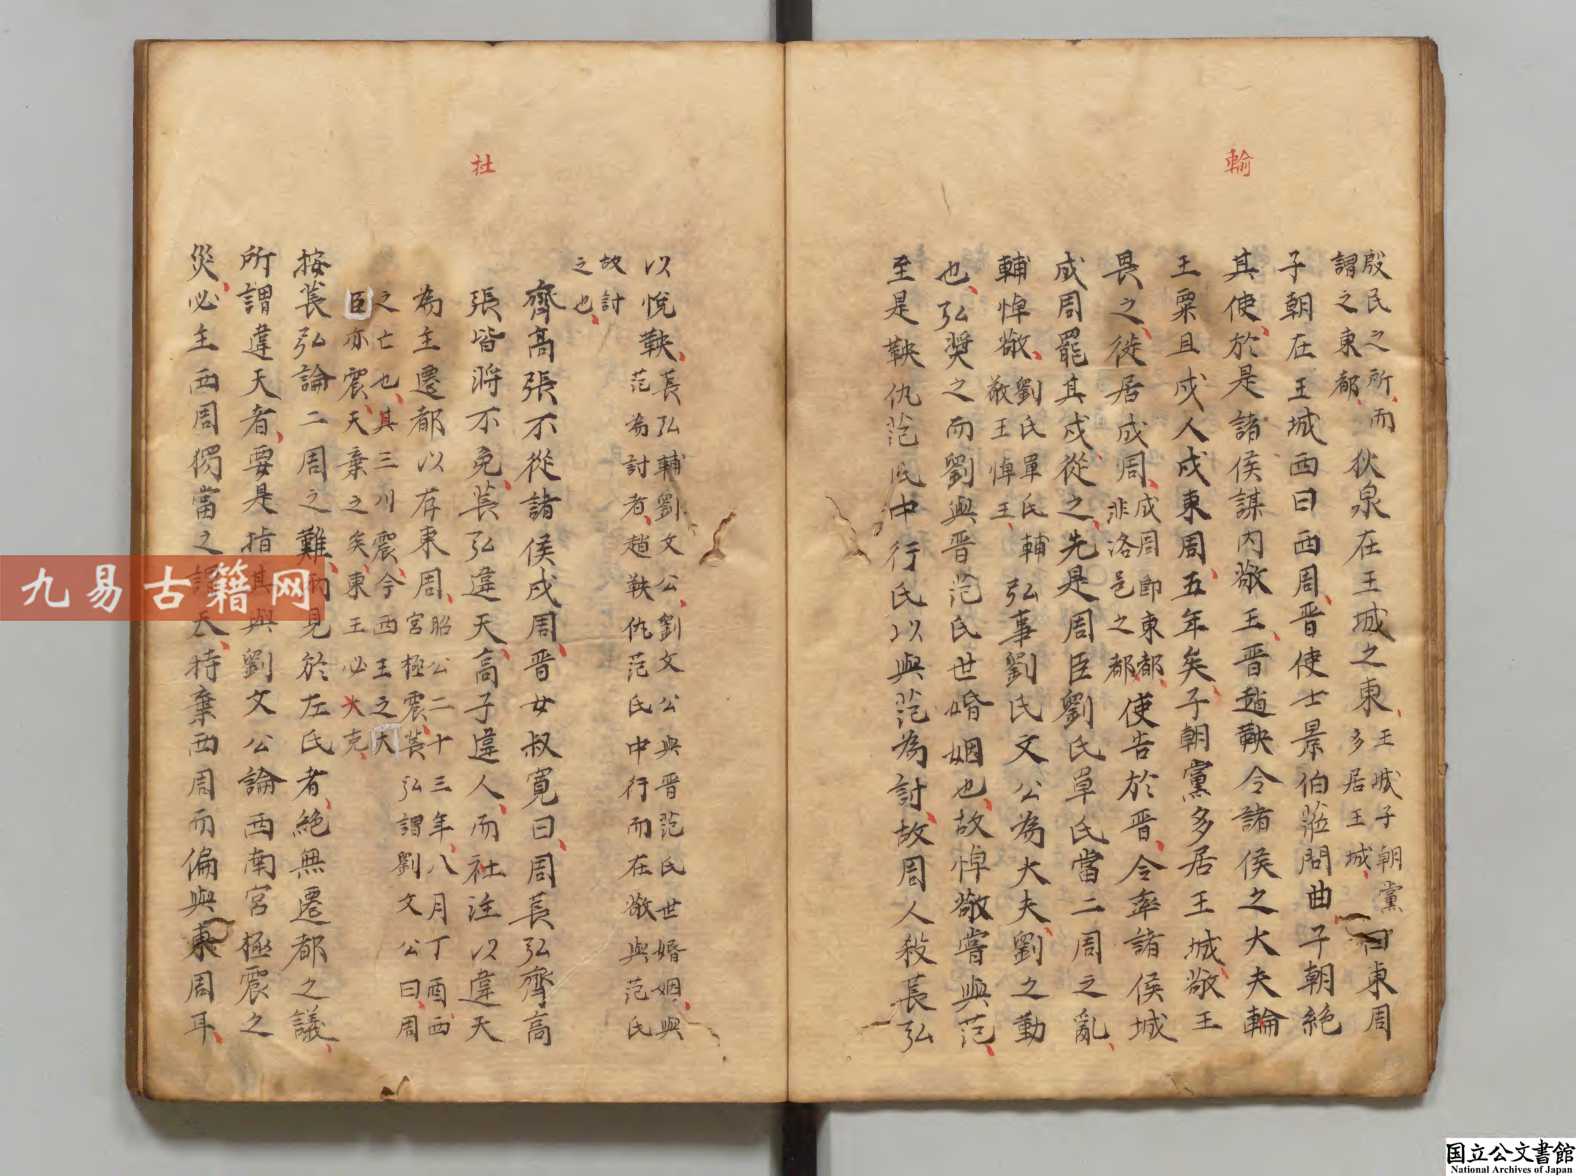 輸
殷民之所而
謂之東都
狄泉在王城之東
王城子朝黨
多居王城
曰東周
子朝在王城西曰西周晋使士景伯蒞問曲子朝絶
其使於是諸侯謀内敬王晋趙鞅令諸侯之大夫輸
王粟且戍人戍東周五年矣子朝黨多居王城敬王
畏之徙居成周
成周即東都
非洛邑之都
使告於晋令率諸侯城
成周罷其戍從之先是周臣劉氏單氏當二周之亂
輔悼敬
劉氏單氏輔
敬王悼王
弘事劉氏文公為大夫劉之勤
也弘奬之而劉與晋范氏世婚姻也故悼敬嘗與范
至是鞅仇范氏中行氏以與范為討故周人殺萇弘
以悅鞅
萇弘輔劉文公劉文公與晋范氏世婚姻與
范為討者趙鞅仇范氏中行而在敬與范氏
故討
之也
社
齊高張不從諸侯戍周晋女叔寛曰周萇弘齊高
張皆將不免萇弘違天高子違人而社注以違天
為主遷都以存東周
昭公二十三年八月丁酉西
宮極震萇弘謂劉文公曰周
之亡也其三川震今西王之大
臣亦震天棄之矣東王必大克
按萇弘論二周之難兩見於左氏者絶無遷都之議
所謂違天者要是指其與劉文公論西南宮極震之
災必主西周獨當之謂天特棄西周而偏與東周耳
九易古籍网
国立公文書館
National Archives of Japan